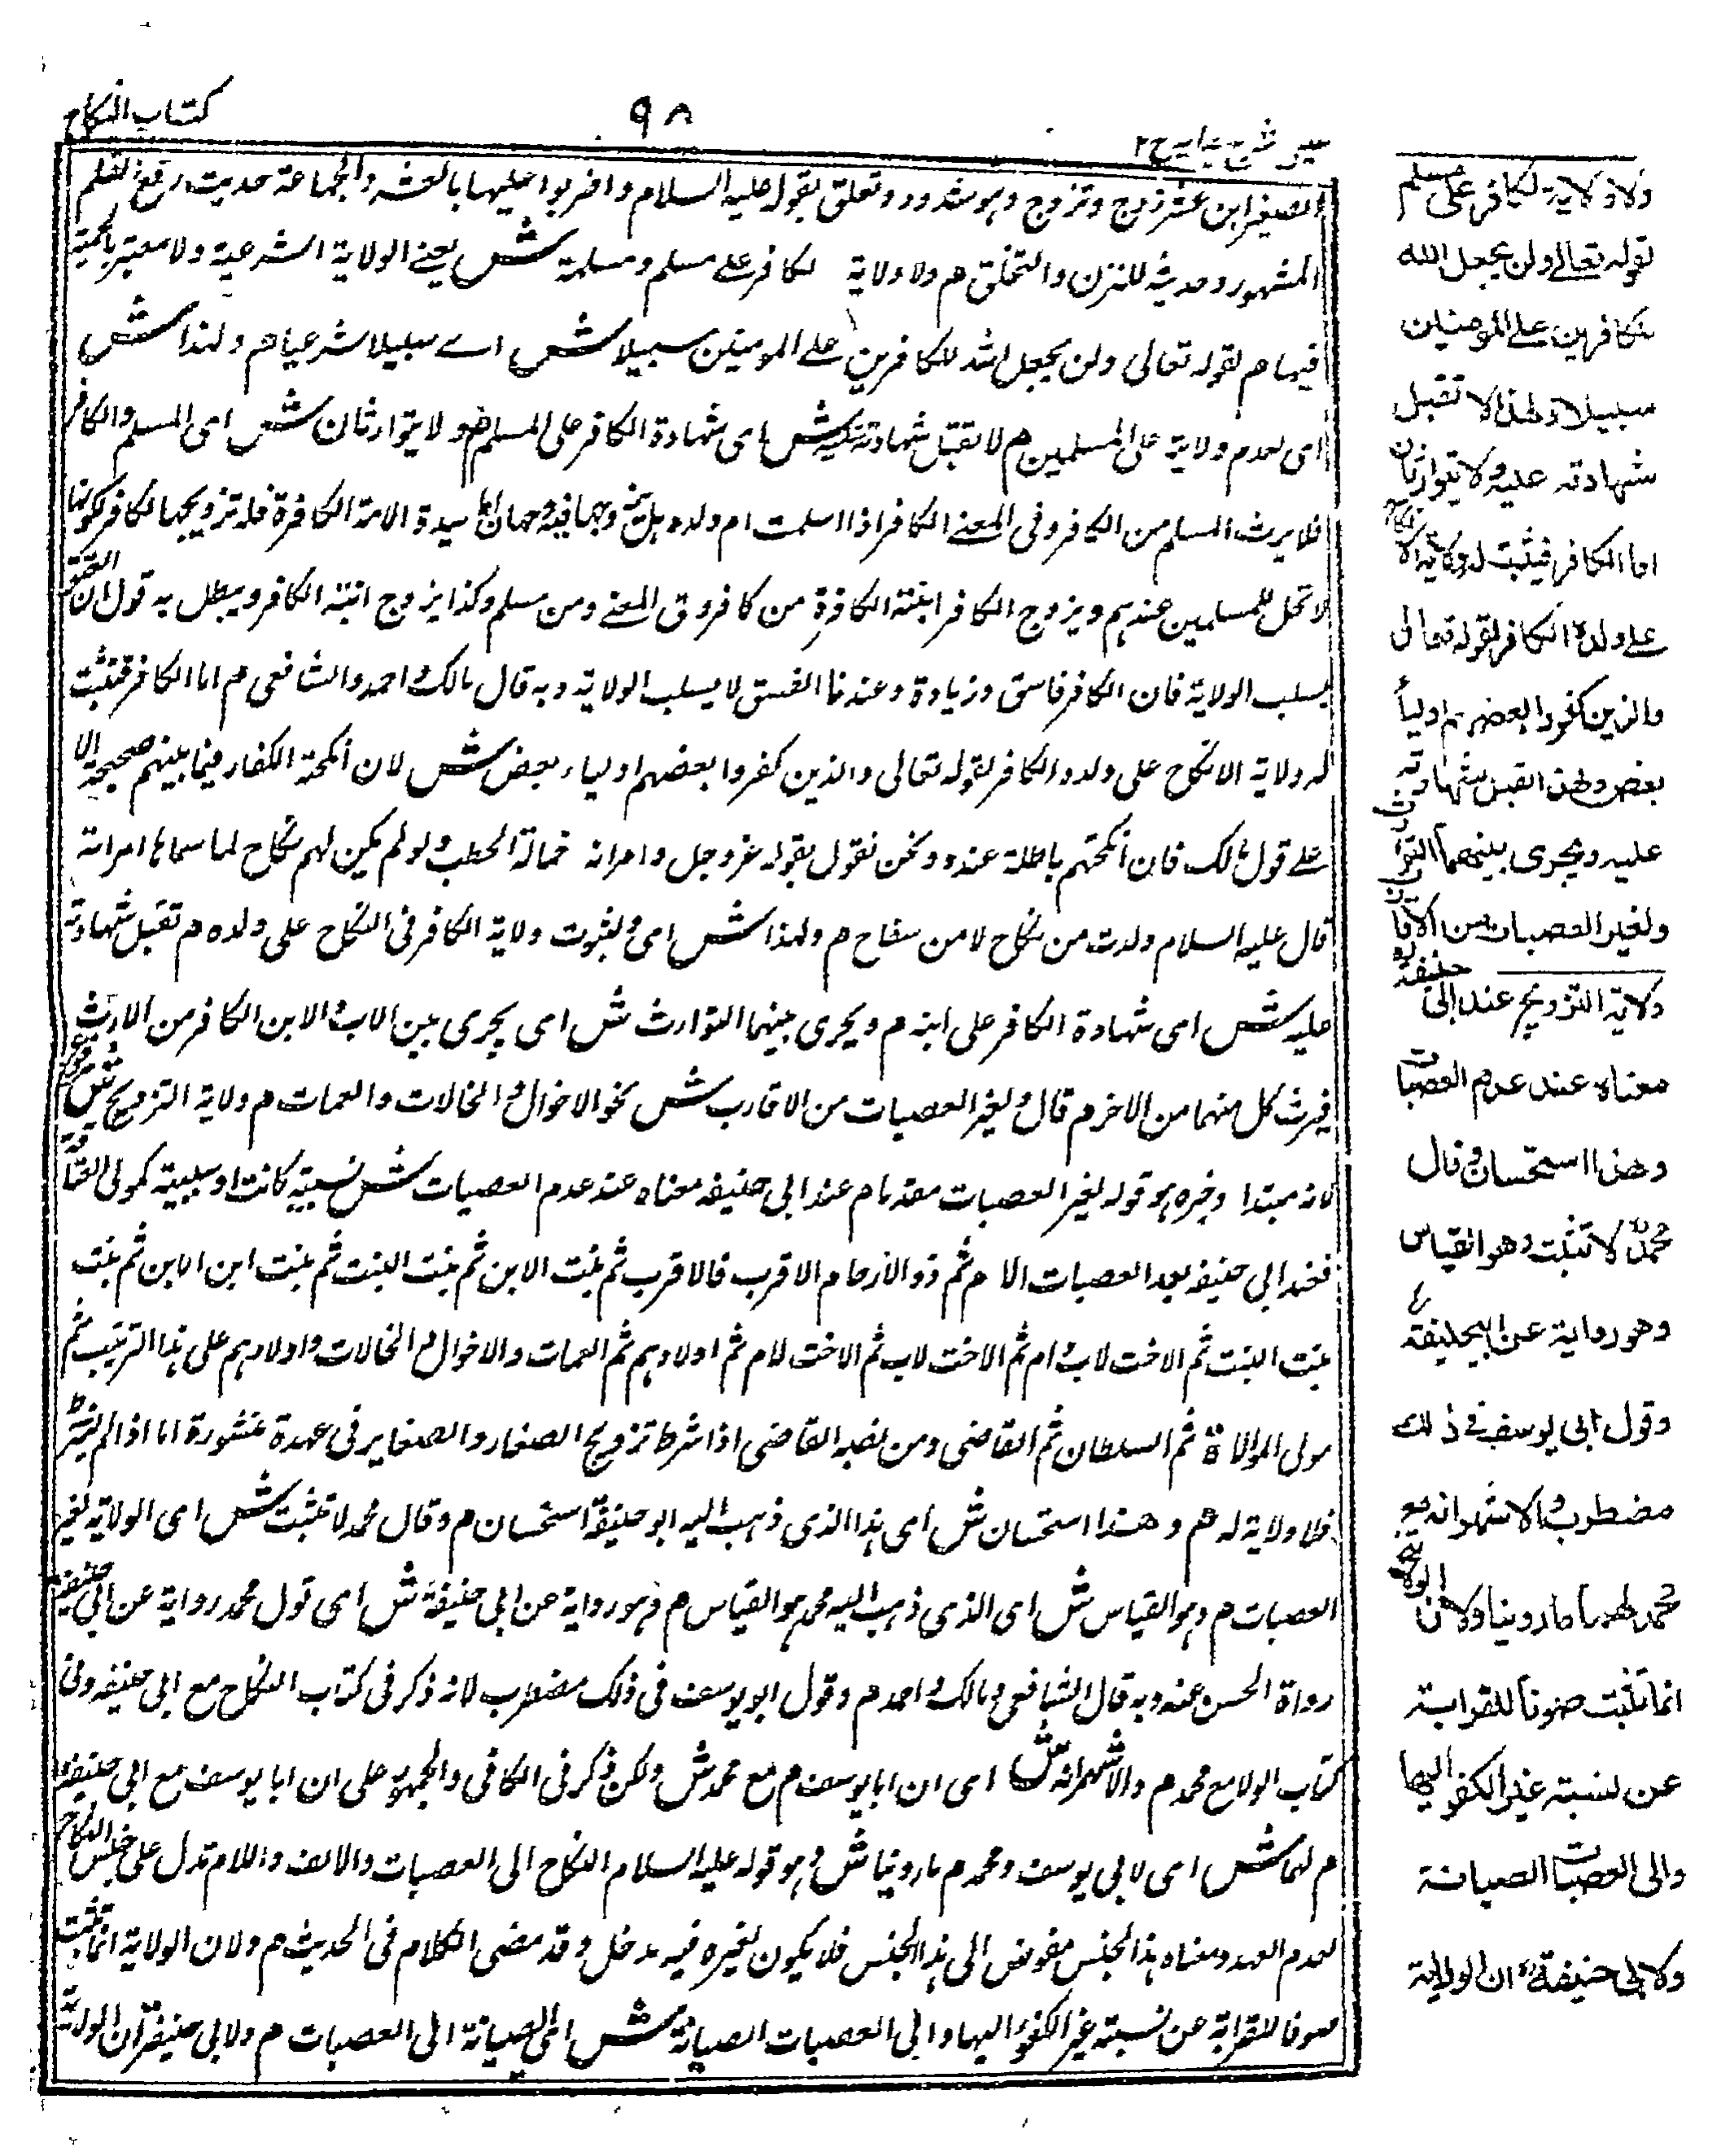 كتاب النكاح
٩٨
عينى شرح هدايه ج ٢
الصغير ابن عشر زوج وتزوج وهو شذوذ وتعلق بقوله عليه السلام واضربوا عليها بالعشر والجماعة حديث رفع القلم
المشهور وحديثه للتمرن والتخلق م ولا ولاية لكافر على مسلم ومسلمة ش يعنى الولاية الشرعية ولا معتبر بالحسية
فيها م لقوله تعالى ولن يجعل الله للكافرين على المومنين سبيلا ش اے سبيلا شرعيا م ولهذا ش
اى لعدم ولاية على المسلمين م لا تقبل شهادته عليه ش اى شهادة الكافر على المسلم م ولا يتوارثان ش اى المسلم والكافر
فلا يرث المسلم من الكافر وفى المغنى الكافر اذا اسلمت ام ولده هل يلى نكاحها فيه وجهان اما سيدة الامة الكافرة فله تزويجها لكافر لكونها
لا تحل للمسلمين عندهم ويزوج الكافر ابنته الكافرة من كافر وفى المغنى ومن مسلم وكذا يزوج ابنته الكافر ويبطل به قول ان الفسق
يسلب الولاية فان الكافر فاسق وزيادة وعندنا الفسق لا يسلب الولاية وبه قال مالك واحمد والشافعى م اما الكافر فتثبت
له ولاية الانكاح على ولده الكافر لقوله تعالى والذين كفروا بعضهم اولياء بعض ش لان انكحة الكفار فيما بينهم صحيحة الا
على قول مالك فان انكحتهم باطلة عنده ونحن نقول بقوله عز وجل وامراته حمالة الحطب ولو لم يكن لهم نكاح لما سماها امراته
قال عليه السلام ولدت من نكاح لا من سفاح م ولهذا ش اى ولثبوت ولاية الكافر فى النكاح على ولده م تقبل شهادته
عليه ش اى شهادة الكافر على ابنه م ويجرى بينهما التوارث ش اى يجرى بين الاب والابن الكافر من الارث
فيرث كل منهما من الاخر م قال ولغير العصبات من الاقارب ش نحو الاخوال والخالات والعمات م ولاية التزويج ش
لانه مبتدا وخبره هو قوله لغير العصبات مقدما م عند ابى حنيفه معناه عند عدم العصبات ش نسبية كانت او سببية كمولى العتاقة
فعند ابى حنيفه بعد العصبات الام ثم ذو الارحام الاقرب فالاقرب ثم بنت الابن ثم بنت البنت ثم بنت ابن الابن ثم بنت
بنت البنت ثم الاخت لاب وام ثم الاخت لاب ثم الاخت لام ثم اولادهم ثم العمات والاخوال والخالات واولادهم على هذا الترتيب ثم
مولى الموالاة ثم السلطان ثم القاضى ومن نصبه القاضى اذا شرط تزويج الصغار والصغاير فى عهدة منشوره اما اذا لم يشترط
فلا ولاية له م وهذا استحسان ش اى هذا الذى ذهب اليه ابو حنيفة استحسان م وقال محمد لا تثبت ش اى الولاية لغير
العصبات م وهو القياس ش اى الذى ذهب اليه محمد هو القياس م وهو رواية عن ابى حنيفة ش اى قول محمد رواية عن ابى حنيفة
رواة الحسن عنه وبه قال الشافعى ومالك واحمد م وقول ابو يوسف فى ذلك مضطرب لانه ذكر فى كتاب النكاح مع ابى حنيفه وفى
كتاب الولا مع محمد م والاشهر انه ش اى ان ابا يوسف م مع محمد ش ولكن ذكر فى الكافى والجمهور على ان ابا يوسف مع ابى حنيفة
م لهما ش اى لابى يوسف ومحمد م ما روينا ش وهو قوله عليه السلام النكاح الى العصبات والالف واللام تدل على جنس النكاح
لعدم العهد ومعناه هذا الجنس مفوض الى هذا الجنس فلا يكون لغيره فيه مدخل وقد مضى الكلام فى الحديث م ولان الولاية انما تثبت
صونا للقرابة عن نسبة غير الكفؤ اليها والى العصبات الصيانة ش اى الصيانة الى العصبات م ولابى حنيفة ان الولاية
ولا ولاية لكافر على مسلم
لقوله تعالى ولن يجعل الله
للكافرين على المومنين
سبيلا ولهذا لا تقبل
شهادته عليه ولا يتوارثان
اما الكافر فيثبت له ولاية الانكاح
على ولده الكافر لقوله تعالى
والذين كفروا بعضهم اولياء
بعض ولهذا تقبل شهادته
عليه ويجرى بينهما التوارث
ولغير العصبات من الاقارب
ولاية التزويج عند ابى حنيفة
معناه عند عدم العصبات
وهذا استحسان وقال
محمد لا تثبت وهو القياس
وهو رواية عن ابيحنيفة
وقول ابى يوسف فى ذلك
مضطرب والاشهر انه مع
محمد لهما ما روينا ولان الولاية
انما تثبت صونا للقرابة
عن نسبة غير الكفو اليها
والى العصبات الصيانة
ولابى حنيفة ان الولاية